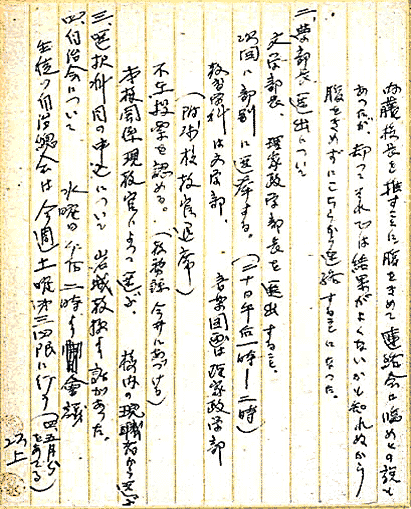 内藤校長を推すことに腹をきめて連絡会に臨めとの説も
あったが、却ってそれでは結果がよくないかも知れぬから
腹をきめずにこちらから連絡することになった。
二、学部長選出について
文学部長、理家政学部長を選出すること、
次回に部別に選挙する。(二十日午后一時―二時)
教育学科は文学部、音楽図画は理家政学部
(附属校教官退席)
不在投票を認める。(教務課今井にあづける)
本校関係現教官によって選ぶ 校内の現職者から選ぶ
三、選択科目の申込について 岩城教授より話があった。
四、自治会について 水曜の午后二時より開会議
生徒の自治総会は今週土曜第三四限に行う(四五月分
とあてる)
以上